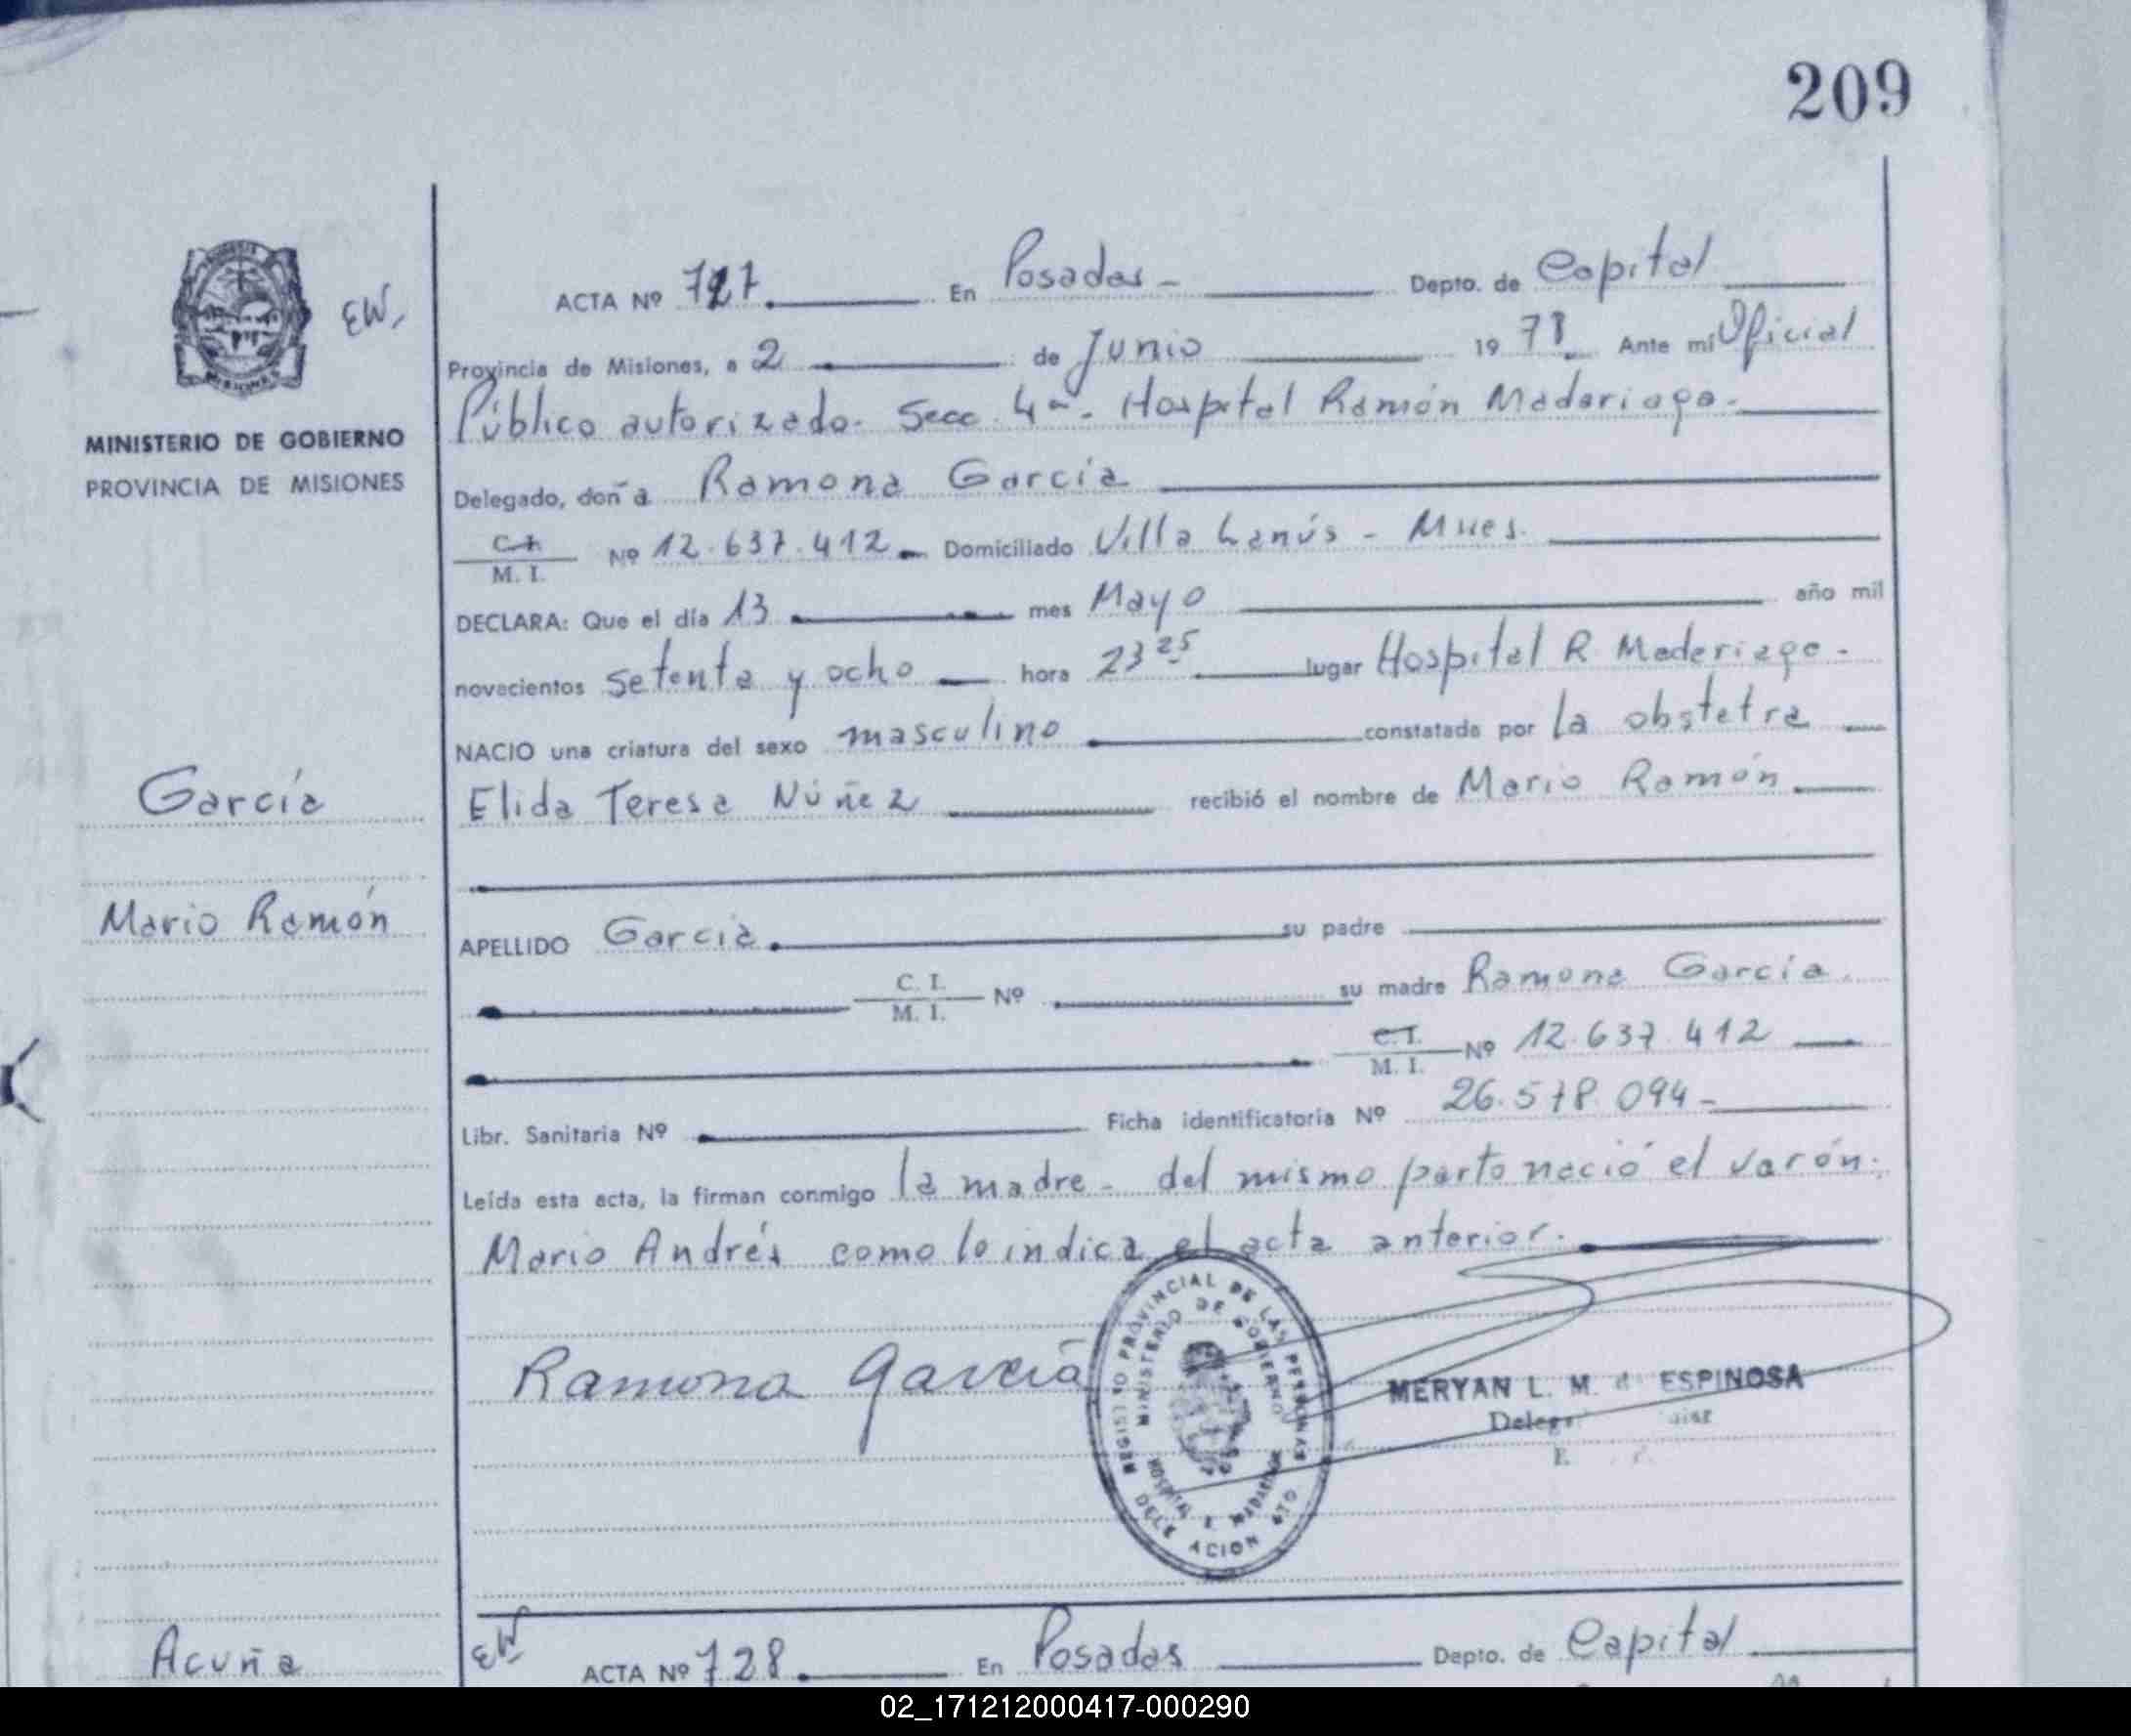 209
ACTA Nº 727. En Posadas - Depto. de Capital
EW.
Provincia de Misiones, a 2 de Junio 1978. Ante mi Oficial
Público autorizado. Secc. 4ª - Hospital Ramón Madariaga.
MINISTERIO DE GOBIERNO
PROVINCIA DE MISIONES
Delegado, doña Ramona García
C. I. / M. I. Nº 12.637.412 Domiciliado Villa Lanús - Mnes.
DECLARA: Que el día 13 mes Mayo año mil
novecientos setenta y ocho hora 23 25 lugar Hospital R Maderiaga.
NACIO una criatura del sexo masculino constatada por la obstetra
García
Elida Teresa Núñez recibió el nombre de Mario Ramón
Mario Ramón
APELLIDO García su padre
C. I. / M. I. Nº su madre Ramona García.
C. I. / M. I. Nº 12.637.412
Libr. Sanitaria Nº Ficha identificatoria Nº 26.578.094-
Leída esta acta, la firman conmigo la madre - del mismo parto nació el varón.
Mario Andrés como lo indica el acta anterior.
Ramona García
REGISTRO PROVINCIAL DE LAS PERSONAS
MINISTERIO DE GOBIERNO
HOSPITAL R MADARIAGA
MERYAN L. M. ESPINOSA
Acuña
EW
ACTA Nº 728. En Posadas Depto. de Capital
02_171212000417-000290